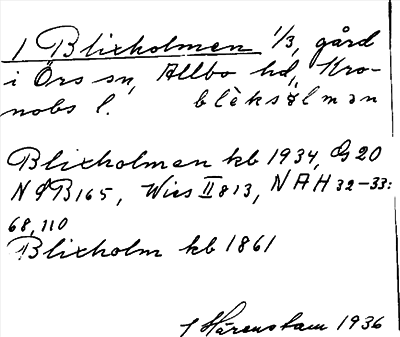 1 Blixholmen 1/3, gård
i Örs sn, Allbo hd, Kro-
nobs l. blèksølmən
Blixholmen kb 1934, G 20
NoB 165, Wies II 813, NAH 32-33:
68, 110
Blixholm kb 1861
Härenstam 1936